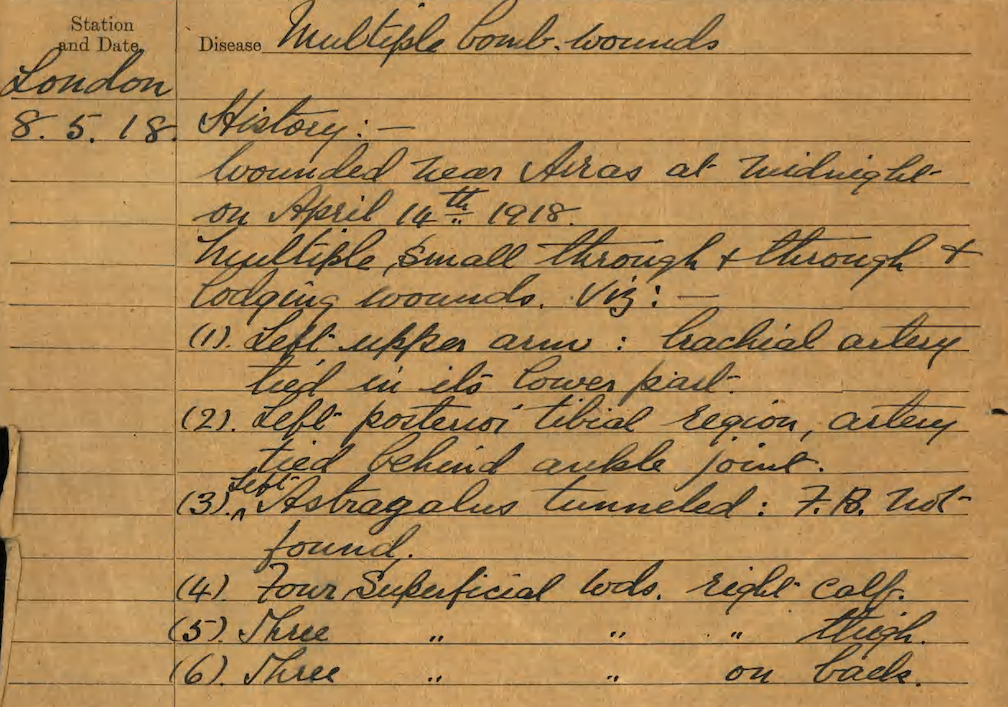 Station
and Date
Disease Multiple bomb. wounds
London
8. 5. 18. History: —
Wounded near Arras at midnight
on April 14th 1918.
Multiple, small through + through +
lodging wounds. Viz: —
(1). Left upper arm : brachial artery
tied in its lower part.
(2). Left posterior tibial region, artery
tied behind ankle joint.
(3). Left Astragalus tunneled : F.B. not
found.
(4). Four Superficial wds. right calf.
(5). Three " " " thigh.
(6). Three " " on back.